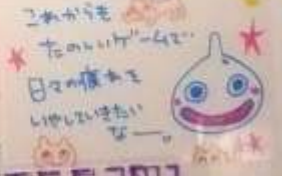 これからも
たのしいゲームで
日々の疲れを
いやしていきたい
なー。